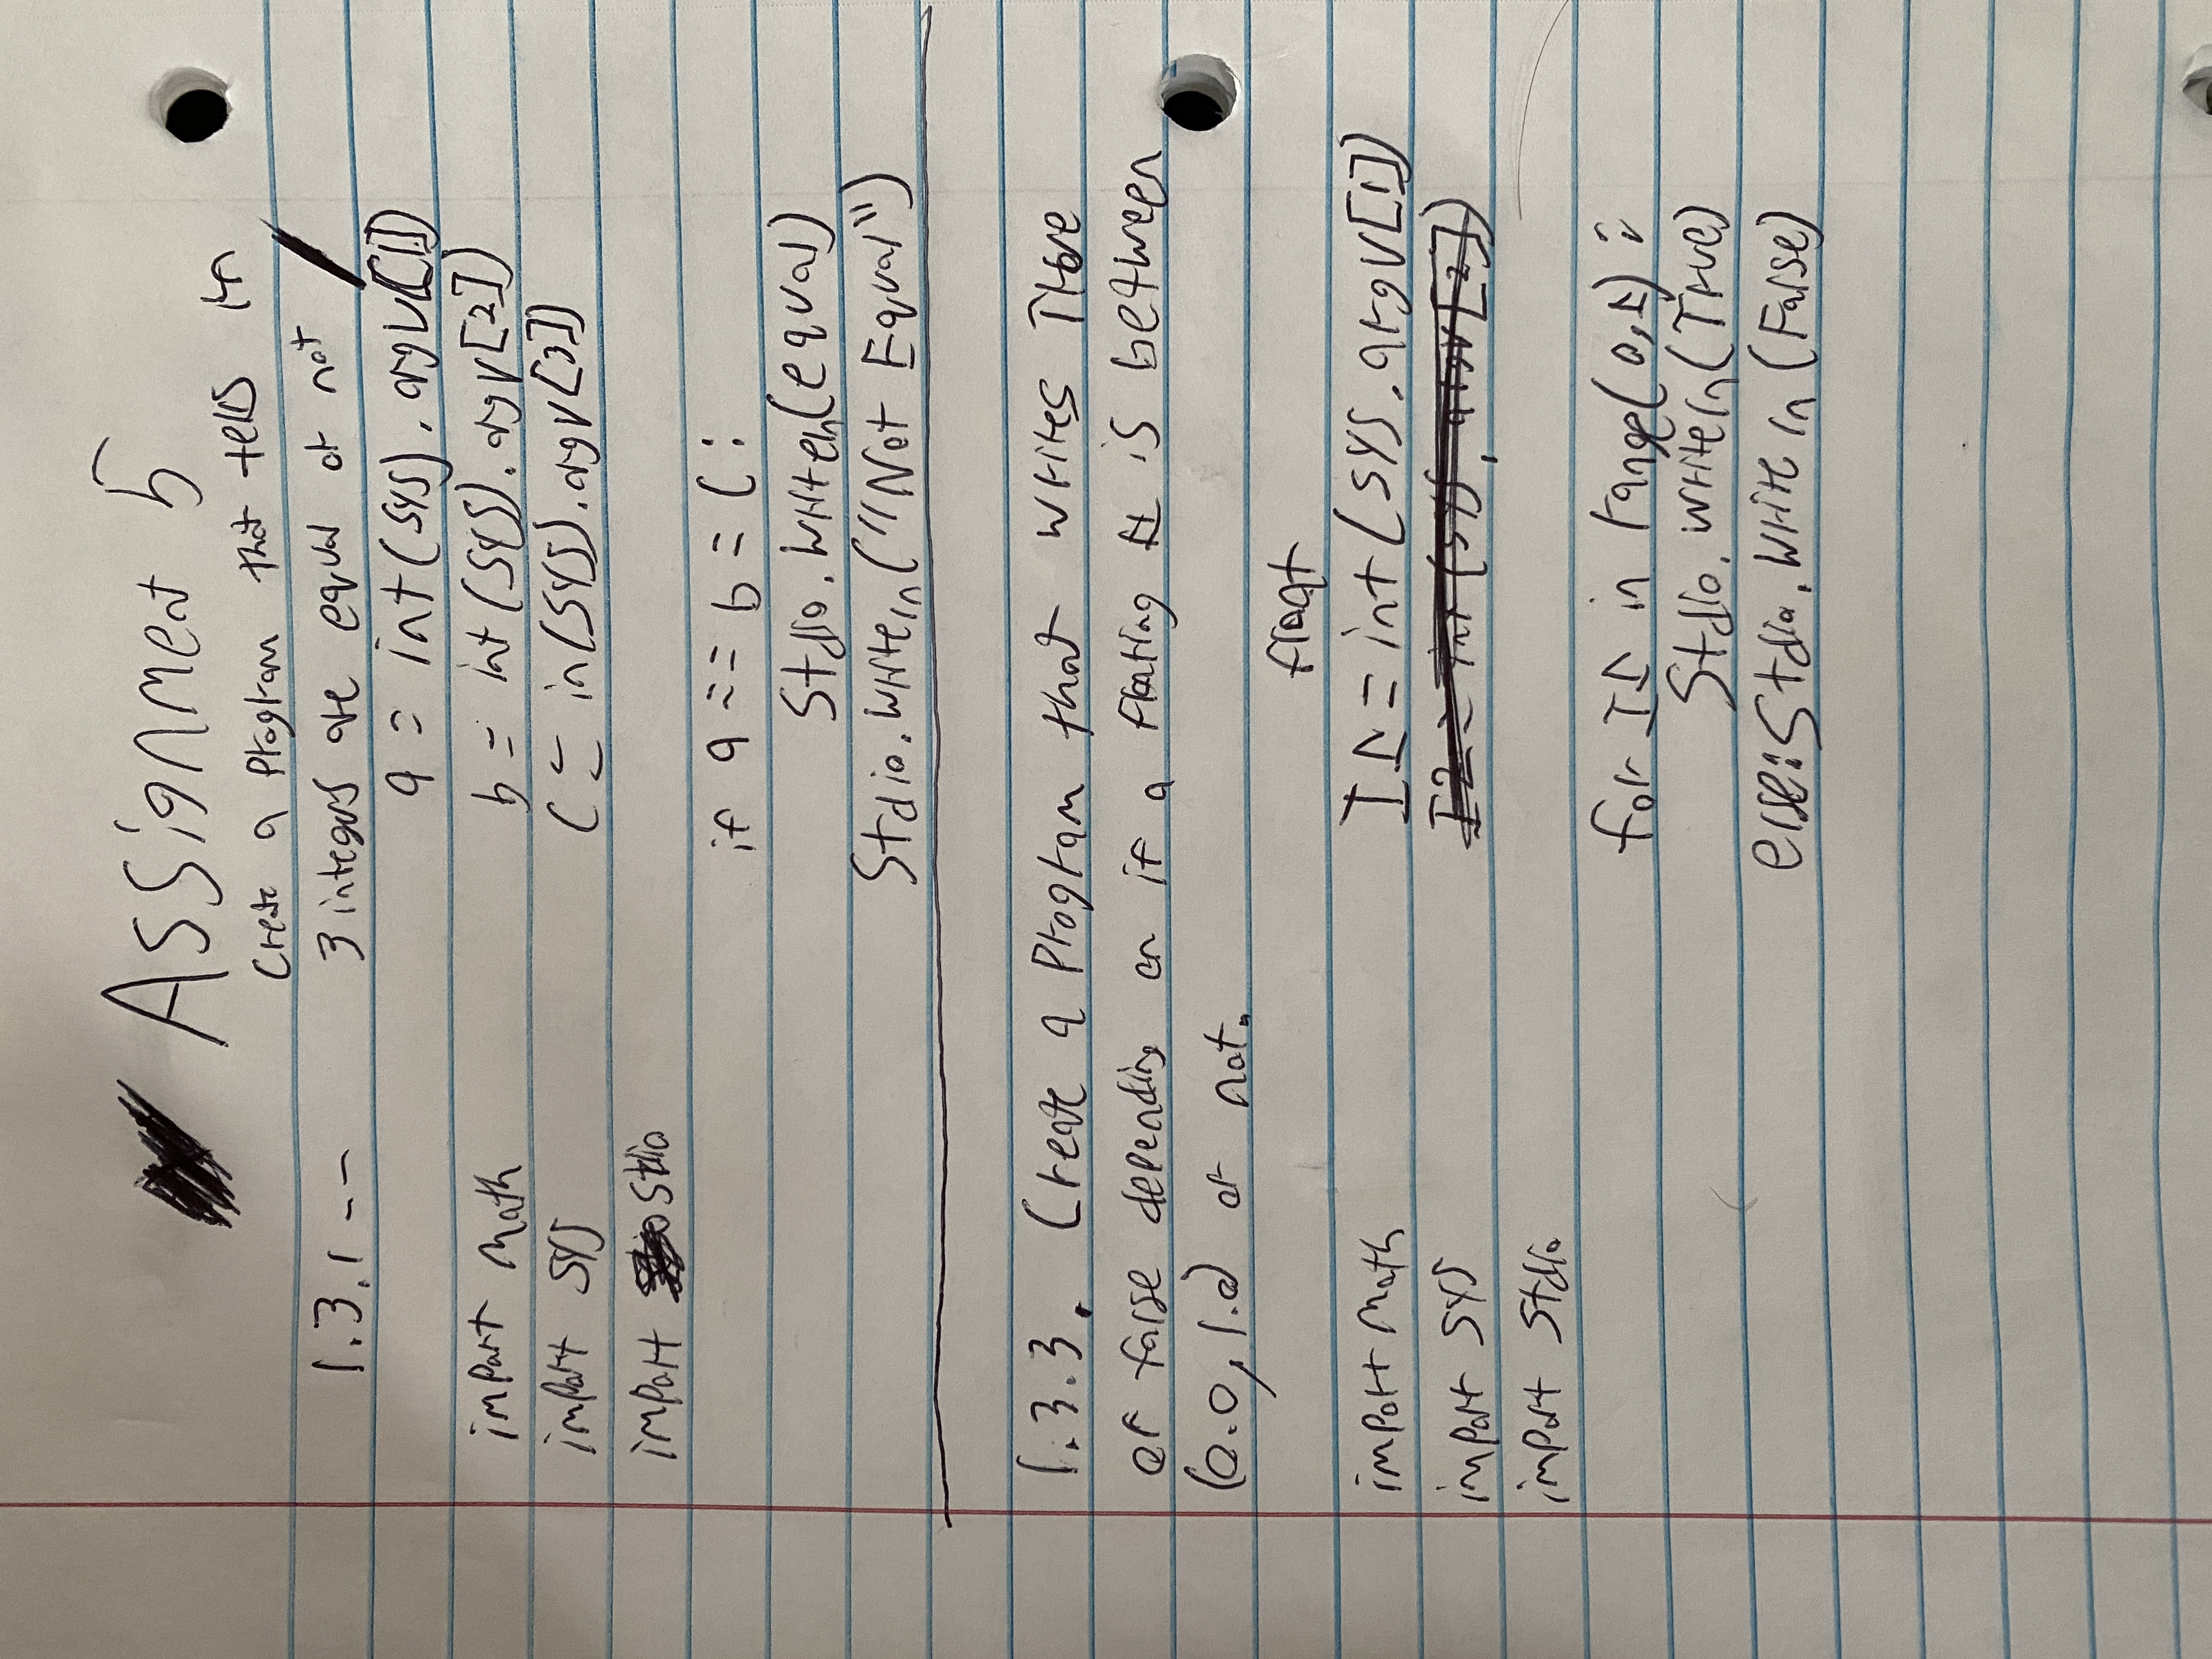 Assignment 5
Create a Program that tells if
1.3.1 -- 3 integers are equal or not
a = int(sys).argv[1])
import math b = int(sys).argv[2])
import sys c = in(sys).argv[3])
import stdio
if a == b = c:
Stdio.writeln(equal)
Stdio.writeln("Not Equal")
1.3.3. Create a Program that writes True
or false depending on if a floating # is between
(0.0, 1.0) or not.
float
import math I1 = int(sys.argv[1])
import sys I2 = int(sys.argv[2])
import Stdio
for I1 in range(0,1):
Stdio.writeln(True)
else: Stdio.writeln(False)